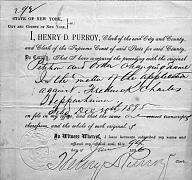 292
STATE OF NEW YORK,
CITY AND COUNTY OF NEW YORK, } ss.
I, HENRY D. PURROY, Clerk of the said City and County,
and Clerk of the Supreme Court of said State for said County,
Do Certify, That I have compared the preceding with the original
Petition and Order Changing name
In the matter of the application
Frederick Charles
1895
on file in my office, and that the same is a correct transcript
therefrom, and of the whole of such original.
In Witness Whereof, I have hereunto subscribed my name and
affixed my official seal, this
day of
Henry D. Purroy